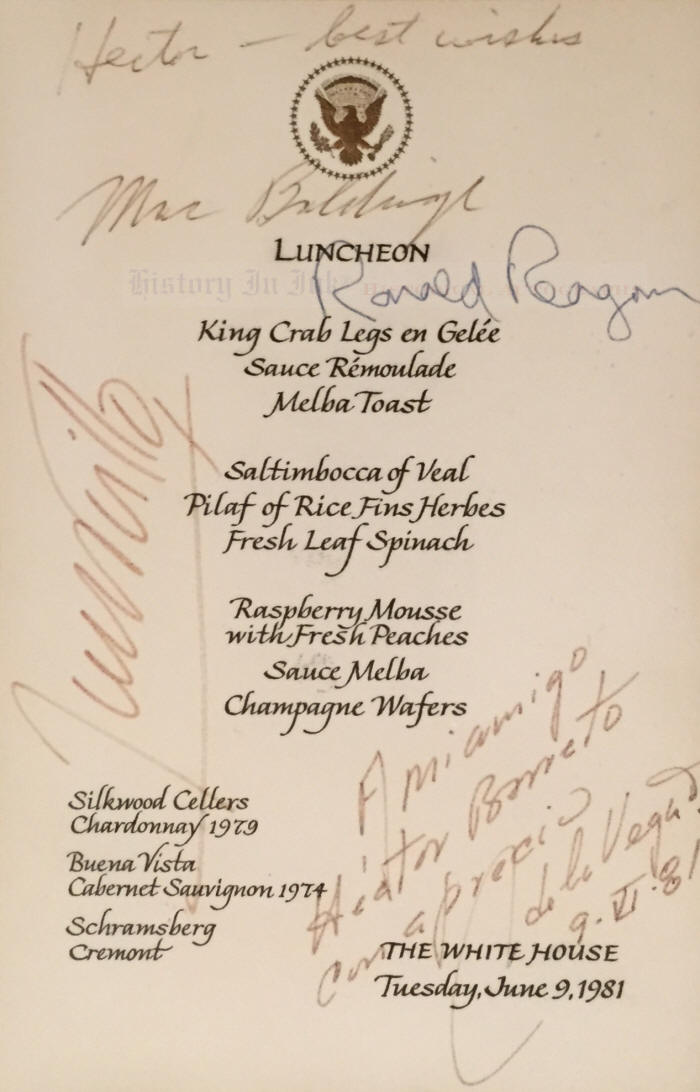 Hector — best wishes
Mac Baldrige
LUNCHEON
History In Ink
Ronald Reagan
King Crab Legs en Gelée
Sauce Rémoulade
Melba Toast
Saltimbocca of Veal
Pilaf of Rice Fins Herbes
Fresh Leaf Spinach
Raspberry Mousse
with Fresh Peaches
Sauce Melba
Champagne Wafers
A mi amigo
Héctor Barreto
con aprecio
de la Vega D.
9.VI.81
Silkwood Cellers
Chardonnay 1979
Buena Vista
Cabernet Sauvignon 1974
Schramsberg
Cremont
THE WHITE HOUSE
Tuesday, June 9, 1981